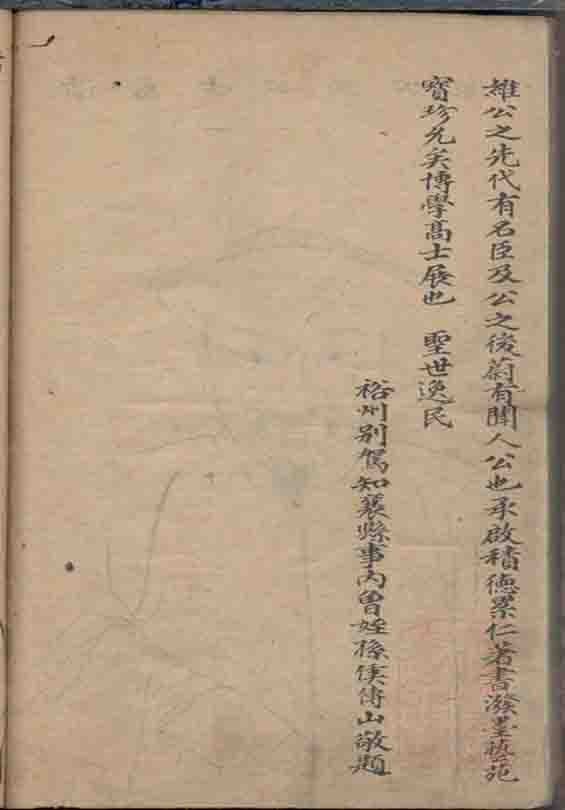 維公之先代有名臣及公之後蔚有聞人公也承啟積德累仁著書潑墨藝苑
寶珍允矣博學高士展也　聖世逸民
裕州別駕知襄縣事內曾姪孫侯傅山敬題